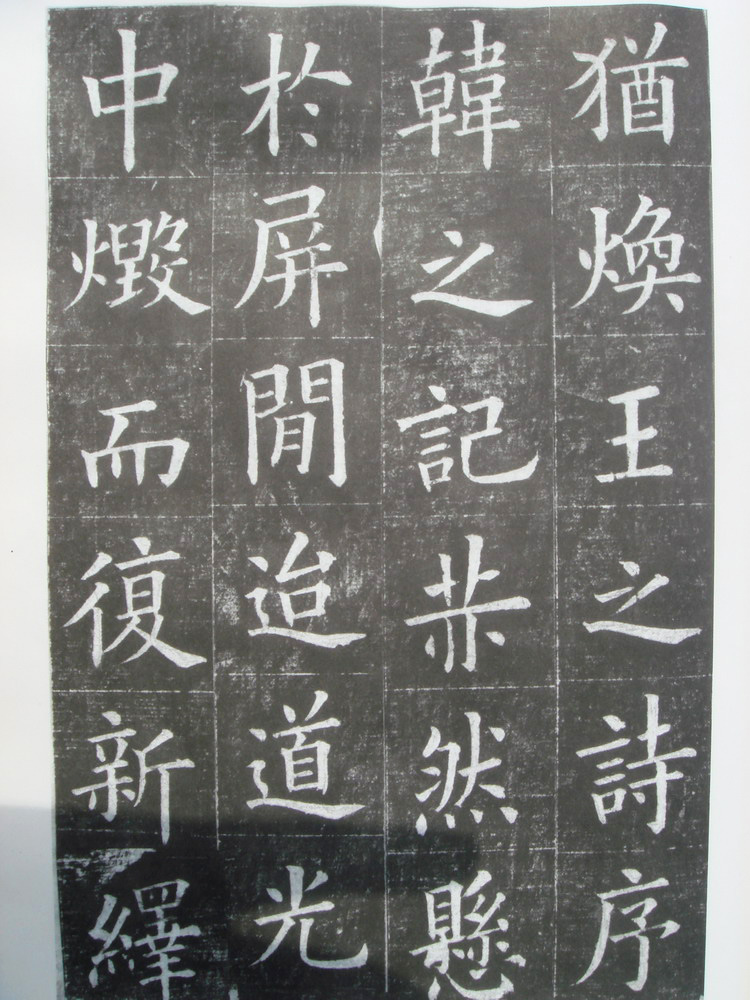 猶煥王之詩序
韓之記然懸
於屏閒迨道光
中燬而復新繹